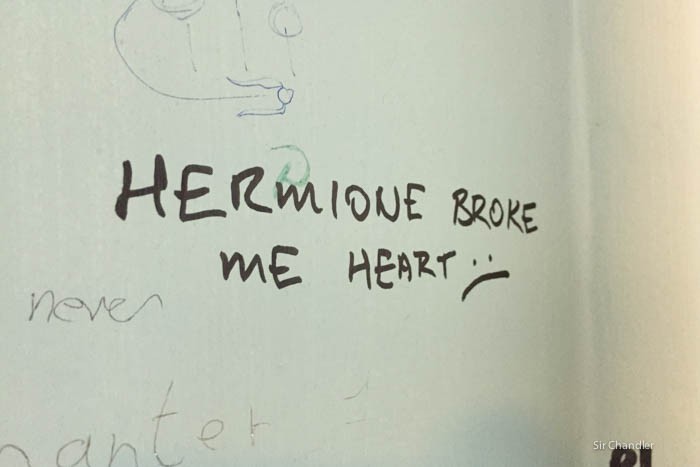 HERMIONE BROKE
ME HEART :(
never
Sir Chandler